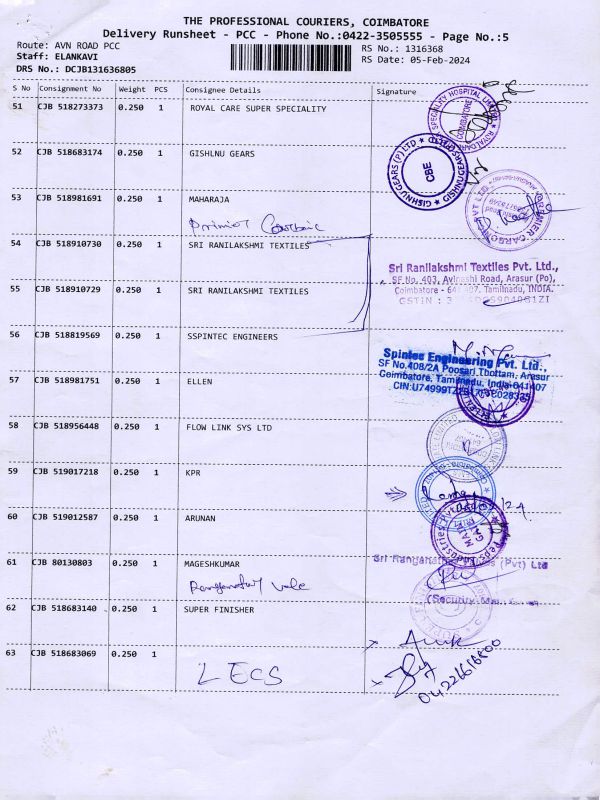 THE PROFESSIONAL COURIERS, COIMBATORE
Delivery Runsheet - PCC - Phone No.:0422-3505555 - Page No.:5
Route: AVN ROAD PCC
RS No.: 1316368
Staff: ELANKAVI
RS Date: 05-Feb-2024
DRS No.: DCJB131636805
S No Consignment No Weight PCS Consignee Details Signature
51 CJB 518273373 0.250 1 ROYAL CARE SUPER SPECIALITY
52 CJB 518683174 0.250 1 GISHLNU GEARS
GISHNU GEARS (P) LTD
CBE
53 CJB 518981691 0.250 1 MAHARAJA
54 CJB 518910730 0.250 1 SRI RANILAKSHMI TEXTILES
Sri Ranilakshmi Textiles Pvt. Ltd.,
SF No. 403, Avinashi Road, Arasur (Po),
Coimbatore - 641 407. Tamilnadu, INDIA.
55 CJB 518910729 0.250 1 SRI RANILAKSHMI TEXTILES
56 CJB 518819569 0.250 1 SSPINTEC ENGINEERS
Spintec Engineering Pvt. Ltd.,
SF No.408/2A Poosari Thottam, Arasur
Coimbatore, Tamilnadu, India-641407
57 CJB 518981751 0.250 1 ELLEN
58 CJB 518956448 0.250 1 FLOW LINK SYS LTD
59 CJB 519017218 0.250 1 KPR
60 CJB 519012587 0.250 1 ARUNAN
61 CJB 80130803 0.250 1 MAGESHKUMAR
62 CJB 518683140 0.250 1 SUPER FINISHER
63 CJB 518683069 0.250 1
LECS